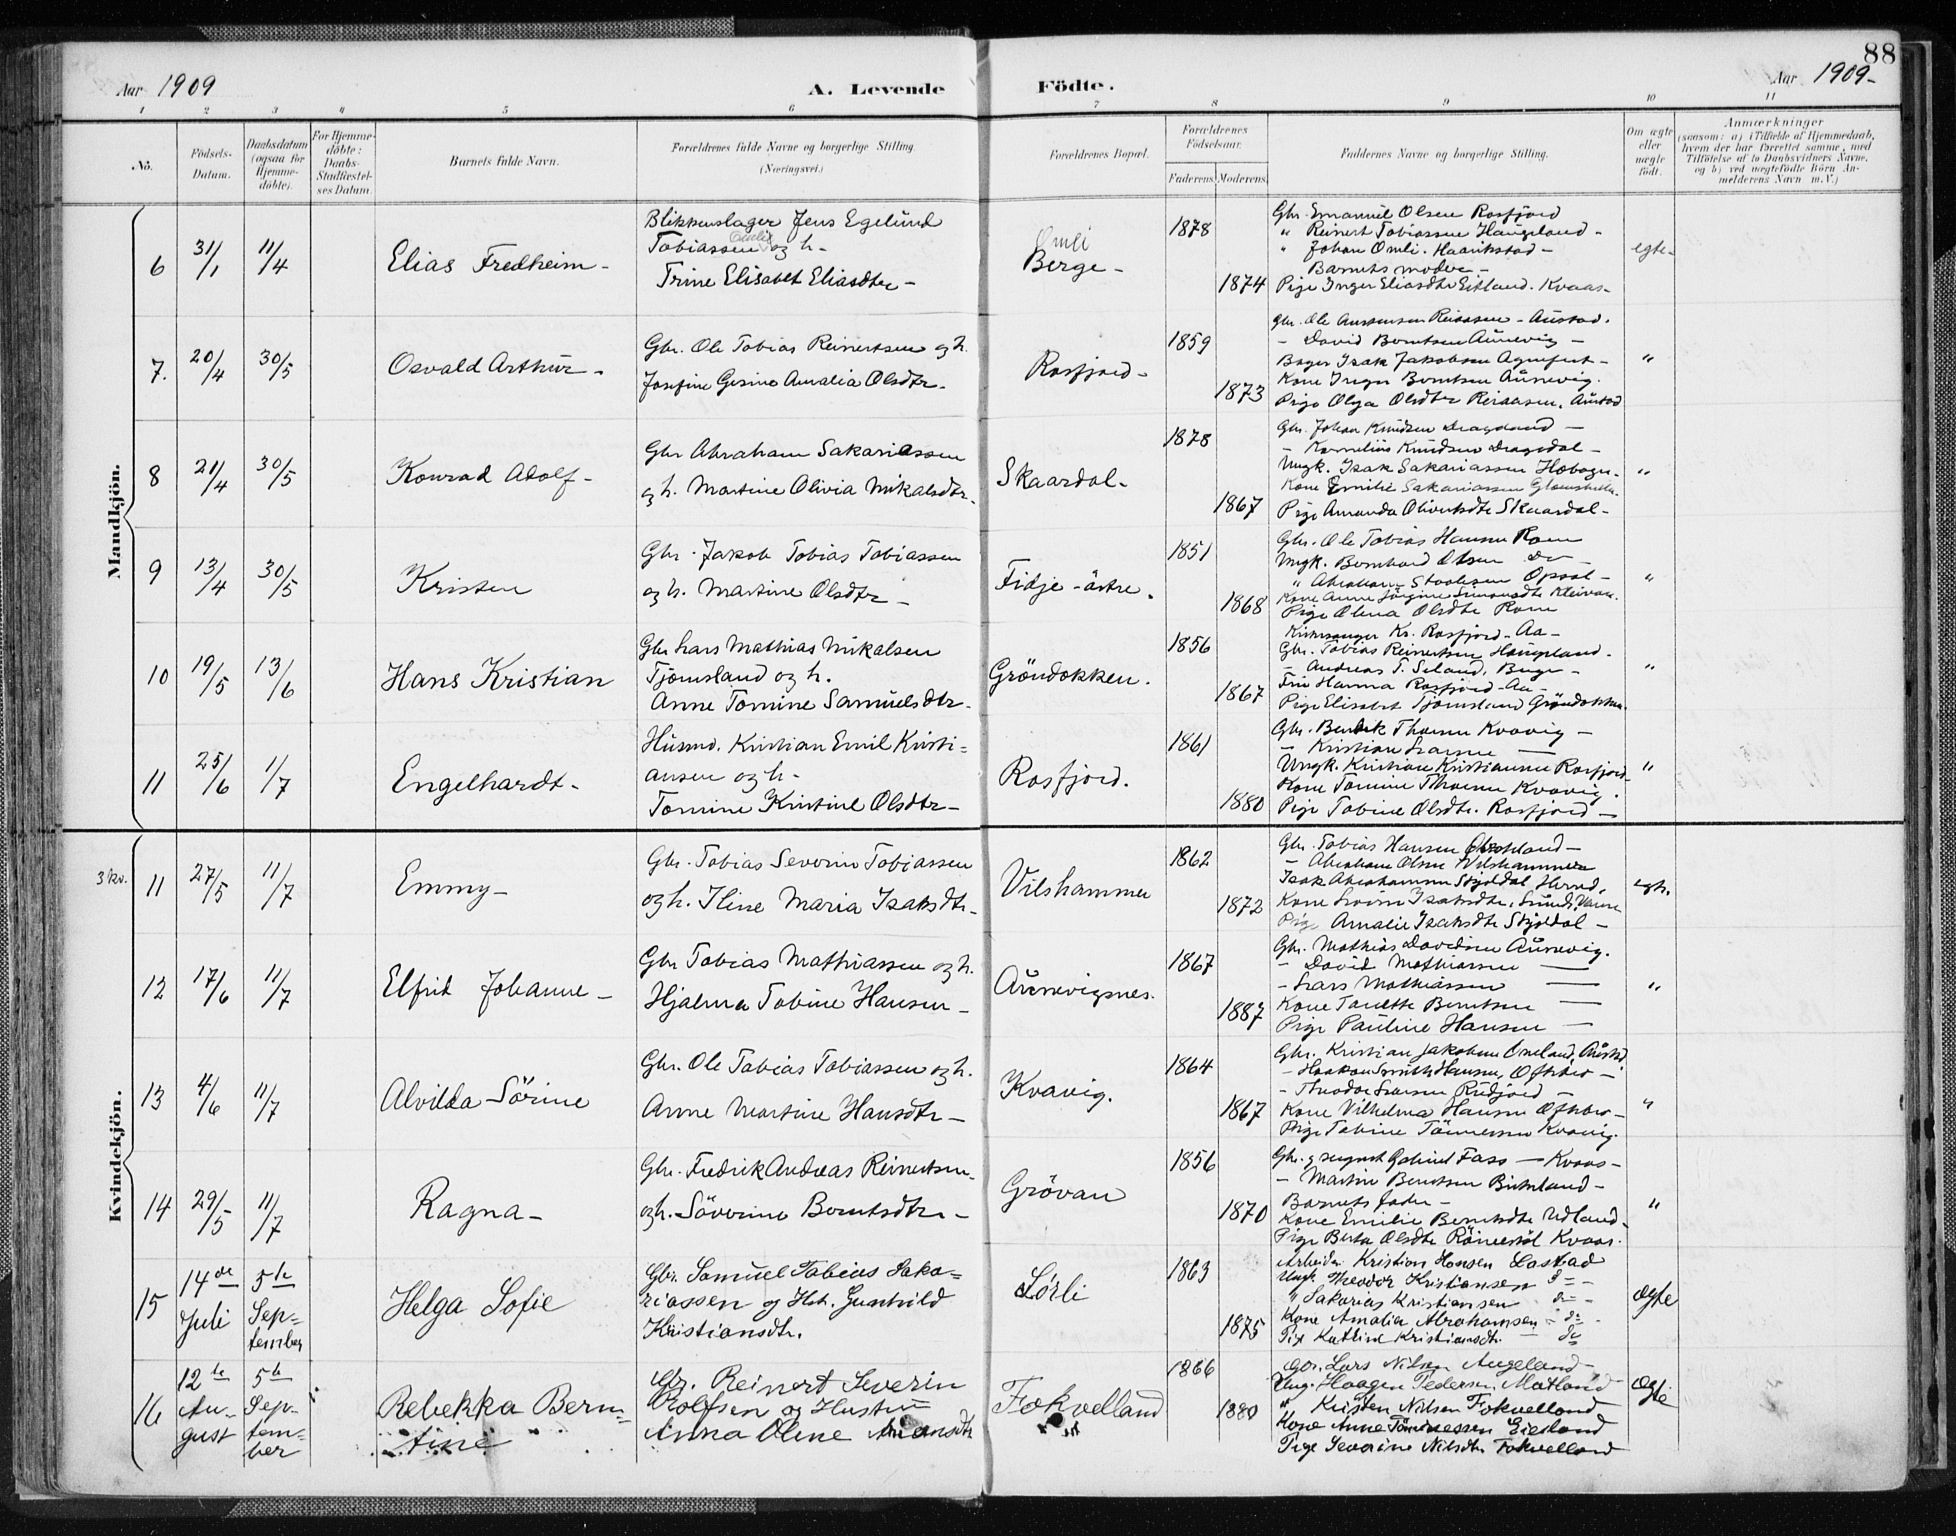 88
Aar 1909
A. Levende Födte.
Aar 1909-
1 2 3 4 5 6 7 8 9 10 11
No.
Födsels-Datum.
Daabsdatum (ogsaa for Hjemmedöbte).
For Hjemmedöbte: Daabs-Stadfæstelses Datum.
Barnets fulde Navn.
Forældrenes fulde Navne og borgerlige Stilling. (Næringsvei.)
Forældrenes Bopæl.
Forældrenes Födselsaar.
Faderens. Moderens.
Faddernes Navne og borgerlige Stilling.
Om ægte eller uægte født.
Anmærkninger
(saasom: a) i Tilfælde af Hjemmedaab, hvem der har forrettet samme, med Tilføielse af to Daabsvidners Navne, og b) ved uægtefödte Börn Anmelderens Navn m. V.)
Mandkjön.
6 31/1 11/4
Elias Fredheim -
Blikkenslager Jens Egelund
Tobiassen Omli og h-
Trine Elisabet Eliasdtr -
Omli
Berge -
1878
1874
Gbr. Emanuel Olsen Rosfjord
" Reinert Tobiassen Haugeland -
" Johan Omli. Haarikstad -
Barnets moder -
Pige Inger Eliasdtr Eitland. Kvaas -
egte -
7. 20/4 30/5
Osvald Arthur -
Gbr. Ole Tobias Reinertsen og h.
Josefine Gesine Amalia Olsdtr. -
Rosfjord -
1859
1873
- David Berntsen Aunevig -
Bager Isak Jakobsen Agnefest -
Kone Inger Berntsen Aunevig.
Pige Olga Olsdtr Reiaasen. Austad
"
8 21/4 30/5
Konrad Adolf -
Gbr Abraham Sakariassen
og h. Martine Olivia Mikalsdtr. -
Skaardal -
1878
1867
Gbr. Johan Knudsen Dragdand -
- Kornelius Knudsen Dragedal -
Ungk. Isak Sakariassen
Kone Emilie Sakariassen
Pige Amanda Skaardal -
"
9 13/4 30/5
Kristen
Gbr. Jakob Tobias Tobiassen
og h. Martine Olsdtr -
Fidje - östre.
1851
1868
Gbr. Ole Tobias Hansen Rom
Ungk. Bernhard Olsen Do -
" Abraham Opsal -
Kone Anne Jörgine Simonsdtr Kleivan.
Pige Olena Olsdtr Rom
"
10 19/5 13/6
Hans Kristian
Gbr Lars Mathias Mikalsen
Tjomsland og h.
Anne Tomine Samuelsdtr. -
Gröndokken.
1856
1867
Kirkesanger Kr. Rosfjord - Aa -
Gbr. Tobias Reinertsen Haugeland -
- Andreas T. Seland, Berge -
Fru Hanna Rosfjord - Aa -
Pige Elisabet Tjomsland Gröndokken
"
11 25/6 1/7
Engelhardt -
Husmd. Kristian Emil Kristi=
ansen og h -
Tomine Kristine Olsdtr -
Rosfjord.
1861
1880
Gbr. Bendik Thorsen Kvavig -
- Kristian Larsen -
Ungk. Kristian Kristiansen Rosfjord -
Kone Tomine Thorsen Kvavig.
Pige Tobine Olsdtr. Rosfjord -
"
Kvindekjön.
3 kv.
11 27/5 11/7
Emmy -
Gbr. Tobias Severin Tobiassen
og h. Iline Maria Isaksdtr. -
Vilshammer
1862
1872
Gbr. Tobias Hansen
- Abraham Olsen Vilshammer
Isak Abrahamsen Skjoldal
Kone
Pige Amalie Isaksdtr Skjoldal -
egte.
12 17/6 11/7
Elfrid Johanne -
Gbr Tobias Mathiassen og h.
Hjalma Tobine Hansen -
Aunevigsnes.
1867
1887
Gbr. Mathias Davidsen Aunevig.
- David Mathiassen -
- Lars Mathiassen -
Kone Berntsen -
Pige Pauline Hansen -
"
13 4/6 11/7
Alvilda Sörine
Gbr. Ole Tobias Tobiassen og h.
Anne Martine Hansdtr -
Kvavig.
1864
1867
Gbr. Kristian Jakobsen
- Haakon Smith Hansen -
- Theodor Larsen -
Kone Vilhelma Hansen
Pige Tobine Tönnesen Kvavig.
"
14 29/5 11/7
Ragna -
Gbr. Fredrik Andreas Reinertsen
og h. Söverine Berntsdtr. -
Grövan
1856
1870
Gbr. August Gabriel Fass - Kvaas -
- Martin Berntsen Birkeland -
Barnets fader -
Kone Emilie Berntsdtr Udland -
Pige Berta Olsdtr Kvaas.
"
15 14de Juli 5te Sep=tember
Helga Sofie
Gbr. Samuel Tobias Saka=
riassen og Hst. Gunhild
Kristiansdtr.
Lörli
1863
1875
Arbeider Kristian Hansen Lastad
Ungk. Theodor Kristiansen do -
" Sakarias Kristiansen do -
Kone Amalia Abrahamsen - do -
Pige Katrine Kristiansdtr. do
ægte
16 12te Au=gust 5te Sep=tem=ber
Rebekka Bern=
tine
Gbr. Reinert Severin
Rolfsen og Hustru
Anna Oline
Fokvelland
1866
1880
Gbr. Lars Nilsen Augeland -
Ung. Haagen Pedersen Mæland
" Kristen Nilsen Fokvelland
Kone Anne Tönnessen Eigeland
Pige Severine Nilsdtr Fokvelland
ægte